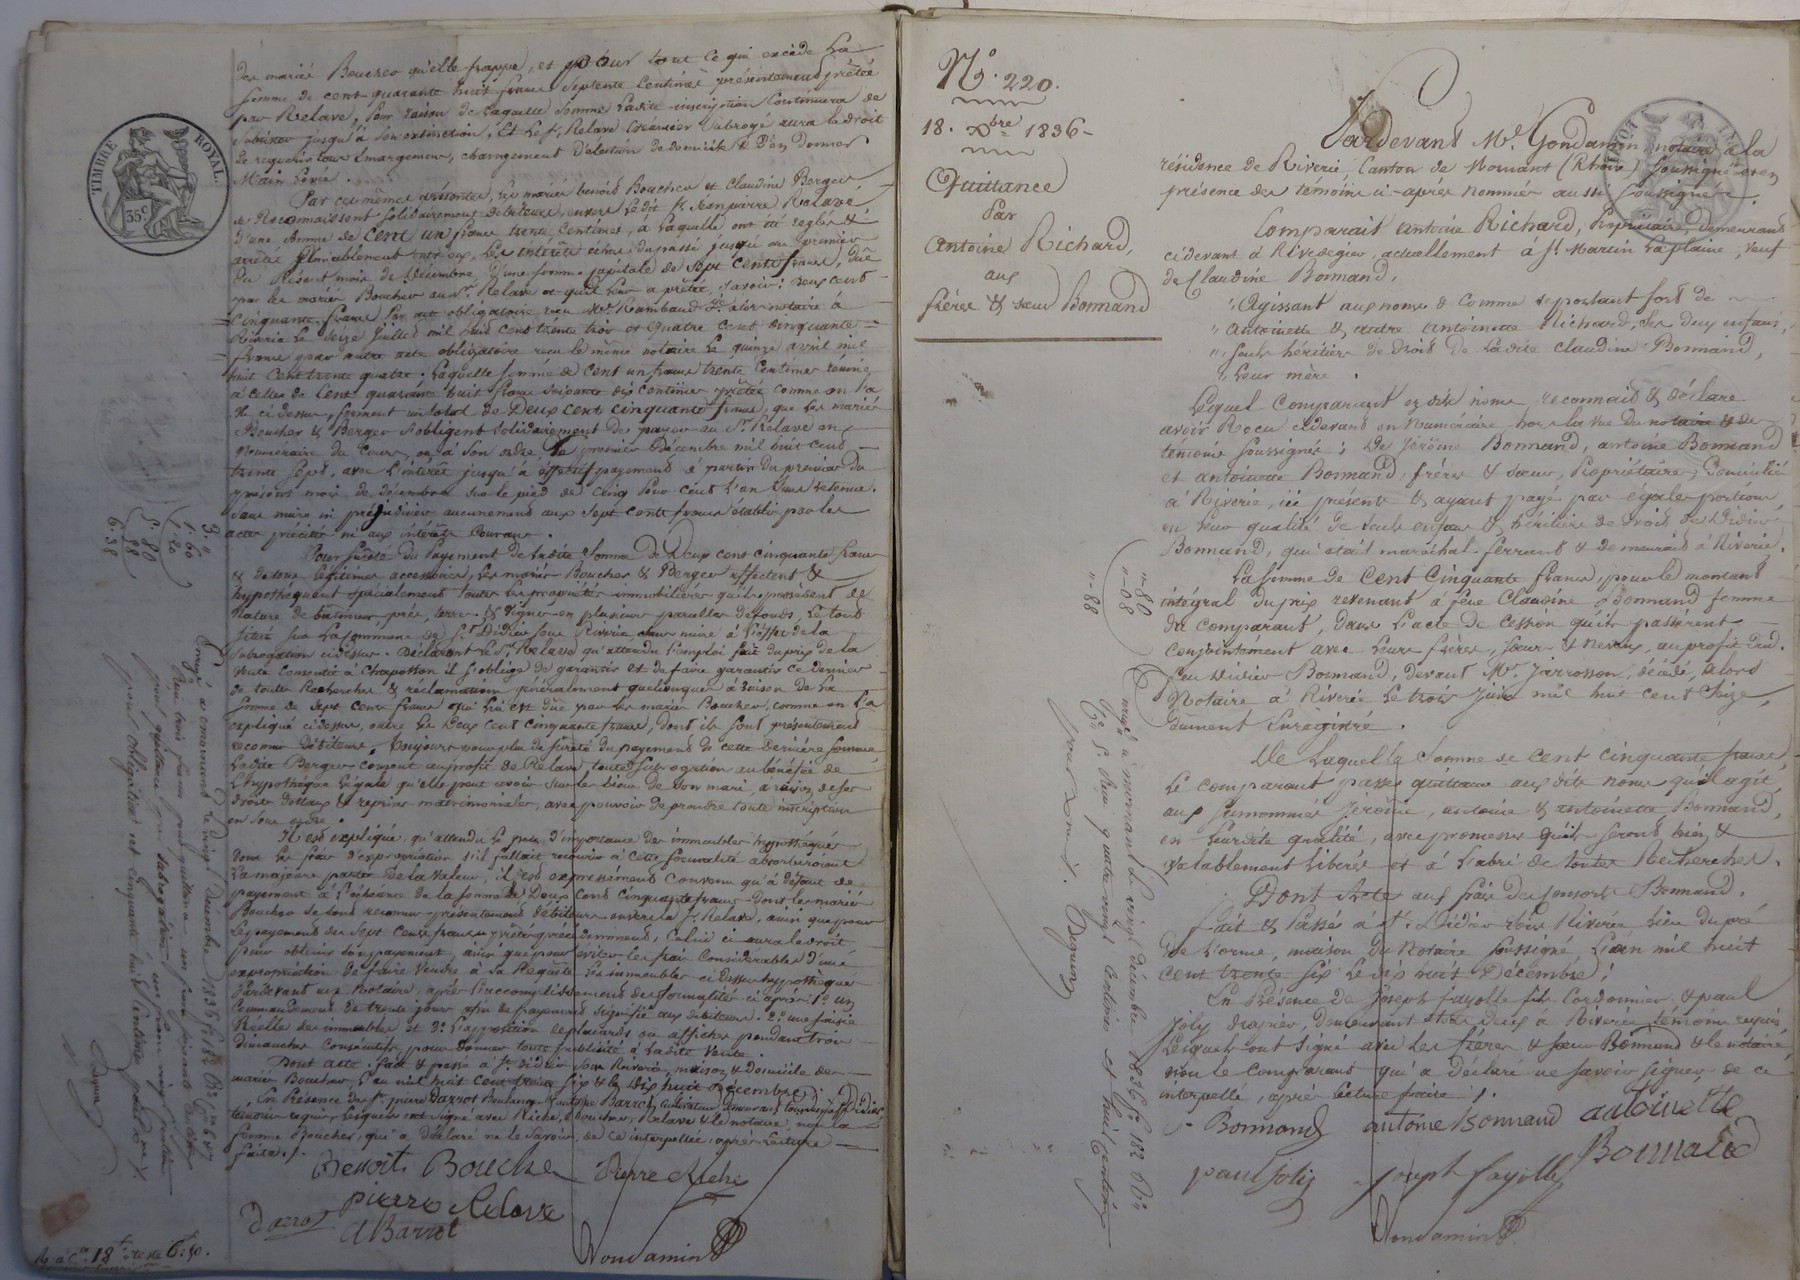 des mariés Boucher qu'elle frappe, et pour tout ce qui excède la
somme de cent quarante huit francs septente centimes présentement prêtée
par Relave, pour raison de laquelle somme ladite inscription continuera de
subsister jusqu'à son extinction. Et le Sr Relave créancier subrogé aura le droit
de requerir tous émargemens, changement d'élection de domicile & d'en donner
Main levée.
Par ces mêmes présentes, les mariés benoit Boucher et Claudine Berger,
se Reconnaissent solidairement débiteurs, envers ledit Sr Jean pierre Relave
d'une somme de cent un francs trente centimes, à laquelle ont été reglés &
arrêtés amiablement entr'eux, les intérêts échus du passé jusqu'au premier
du Présent mois de Décembre, d'une somme capitale de sept cents francs, due
par les mariés Boucher au Sr Relave et qu'il leur a prêtée, savoir: deux cent
Cinquante francs par acte obligatoire reçu Me Rambaud alors notaire à
Riverie le seize juillet mil huit cent trente trois et quatre cent cinquante
francs par autre acte obligatoire reçu le même notaire le quinze avril mil
huit cent trente quatre. Laquelle somme de cent un francs trente centimes réunie
à celle de cent quarante huit francs soixante dix centimes prêtée comme on l'a
dit ci dessus, forment un total de Deux cent cinquante francs, que les mariés
Boucher & Berger s'obligent solidairement de payer au Sr Relave en
Numéraire du Cours, ou à son ordre, le premier Décembre mil huit cent
trente sept, avec l'intérêt jusqu'à effectif payement à partir du premier du
présent mois de décembre sur le pied de cinq pour cent l'an sans retenue.
sans nuire ni préjudicier aucunement aux sept cents francs établis par les
actes précités ni aux intérêts courans.
Pour sureté du Payement de ladite somme de Deux cent cinquante francs
& de tous légitimes accessoires, les mariés Boucher & Berger affectent &
hypothèquent spécialement toutes les propriétés immobilières qu'ils possèdent de
Nature de bâtimens, prés, terres & vignes en plusieurs parcelles de fonds, le tout
situé sur la commune de St Didier sous Riverie, sans nuire à l'effet de la
subrogation ci dessus. Déclarant le Sr Relave qu'attendu l'emploi fait du prix de la
Vente consentie à Chapotton il s'oblige de garantir et de faire garantir ce dernier
de toutes Recherches & réclamations généralement quelconques à raison de la
somme de sept cents francs qui lui est due par les mariés Boucher, comme on l'a
expliqué ci dessus, outre les Deux cent cinquante francs, dont ils sont présentement
reconnus débiteurs. Toujours pour plus de sureté du payement de cette dernière somme,
Ladite Berger consent au profit de Relave toute subrogation au bénéfice de
L'hypothèque légale qu'elle peut avoir sur les biens de son mari, à raison de ses
droits dotaux & reprises matrimoniales, avec pouvoir de prendre toute inscription
en sous ordre.
Il est expliqué qu'attendu le peu d'importance des immeubles hypothéqués
dont les frais d'expropriation s'il fallait recourir à cette formalité absorberaient
La majeure partie de la valeur, il est expressément convenu qu'à défaut de
payement à l'échéance de la somme de Deux cent cinquante francs dont les mariés
Boucher se sont reconnus présentement débiteurs envers le Sr Relave, ainsi que pour
le payement des sept cents francs prêtés précédemment, celui ci aura le droit
pour obtenir son payement, ainsi que pour éviter les frais considérables d'une
expropriation de faire vendre à sa Requête les immeubles ci dessus hypothéqués
Pardevant un Notaire, après l'accomplissement des formalités ci après: 1° un
Commandement de trente jours afin de payement signifié aux débiteurs. 2° une saisie
Réelle des immeubles et 3° l'apposition de placards ou affiches pendant trois
dimanches consécutifs pour donner toute publicité à ladite vente.
Dont acte. fait & passé à St Didier sous Riverie, maison & domicile des
mariés Boucher, l'an mil huit cent trente six & le dix huit Décembre.
En Présence des Srs pierre Darrot Boulanger & antoine Barrot, cultivateur demeurant tous deux à St Didier
témoins requis lesquels ont signé avec Riche, Boucher, Relave & le notaire, non la
femme Boucher, qui a déclaré ne le savoir, de ce interpellée, après Lecture
faite./.
Benoit Bouche Pierre Riche
pierre Relave
Darrot
A Barrot
Gondamin
TIMBRE ROYAL.
35 c
3. "
1. 60
1. 20
5. 80
" 58
6. 38
Enregé à mornant le vingt Décembre 1836 fo 182
Reçu trois francs pour quittance un franc soixante centimes
pour quittance par subrogation un franc vingt centimes
pour obligation et cinquante huit centimes pour le 10e.
Deguers
N° 220.
18. Xbre 1836-
Quittance
Par
Antoine Richard,
aux
frères & sœur Bonnand
"-80
"-08
"-88
Enregé à mornant le vingt décembre 1836 fo 182 Ro
Co 5. Reçu quatre vingt centimes et huit centimes
pour dixe. Deguers
Pardevant Me Gondamin notaire à la
résidence de Riverie, Canton de Mornant (Rhône) soussigné et en
présence des témoins ci-après nommés aussi soussignés.
Comparait antoine Richard, Propriétaire, demeurant
cidevant à Rivedegier, actuellement à St Martin la plaine, veuf
de Claudine Bonnand,
"Agissant aux noms & comme se portant fort de
"Antoinette & autre Antoinette Richard, ses deux enfans,
"seules héritières de droit de ladite Claudine Bonnand,
"Leur mère.
Lequel Comparant es dits noms reconnait & déclare
avoir Reçu cidevant en Numéraire hors la vue du notaire & des
témoins soussignés; De Jérôme Bonnand, antoine Bonnand
et antoinette Bonnand, frères & sœur, Propriétaires, domiciliés
à Riverie, ici présents & ayant payé par égales portions,
en leur qualité de seuls enfans & héritiers de droit de Didier
Bonnand, qui était maréchal-ferrant & demeurait à Riverie.
La somme de Cent Cinquante francs, pour le montant
intégral du prix revenant à feue Claudine Bonnand femme
du comparant, dans l'acte de Cession qu'ils passèrent
conjointement avec leurs frères, sœurs & neveux, au profit dud.
feu Didier Bonnand, devant Me Jarrosson, décédé, alors
Notaire à Riverie le trois Juin mil huit cent seize,
dument Enregistré.
De Laquelle somme de cent cinquante francs,
Le comparant passe quittance aux dits noms qu'il agit,
aux surnommés Jerôme, antoine & antoinette Bonnand,
en leur dite qualité, avec promesse qu'ils seront bien &
valablement liberés et à l'abri de toutes Recherches.
Dont Acte aux frais des consorts Bonnand.
Fait & Passé à St Didier sous Riverie, lieu du pré
de l'orme, maison du Notaire soussigné, L'an mil huit
cent trente six le dix huit Décembre;
En Présence de Joseph fayolle fils Cordonnier & paul
Joly draper, demeurant tous deux à Riverie témoins requis
Lesquels ont signé avec les frères & sœur Bonnand & le notaire,
non le Comparant qui a déclaré ne savoir signer de ce
interpellé, après lecture faite./.
J- Bonnand antoine Bonnand antoinette
Bonnand
paul Joly joseph fayolle
Gondamin